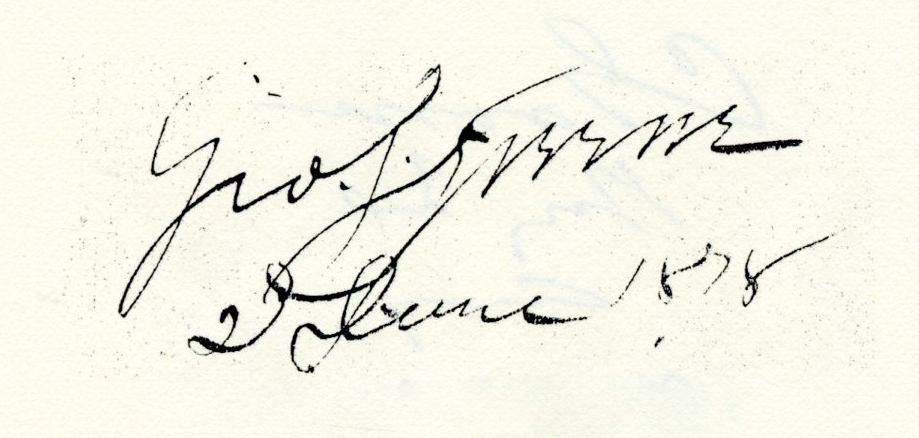 Geo. S. Greene
2d June 1878